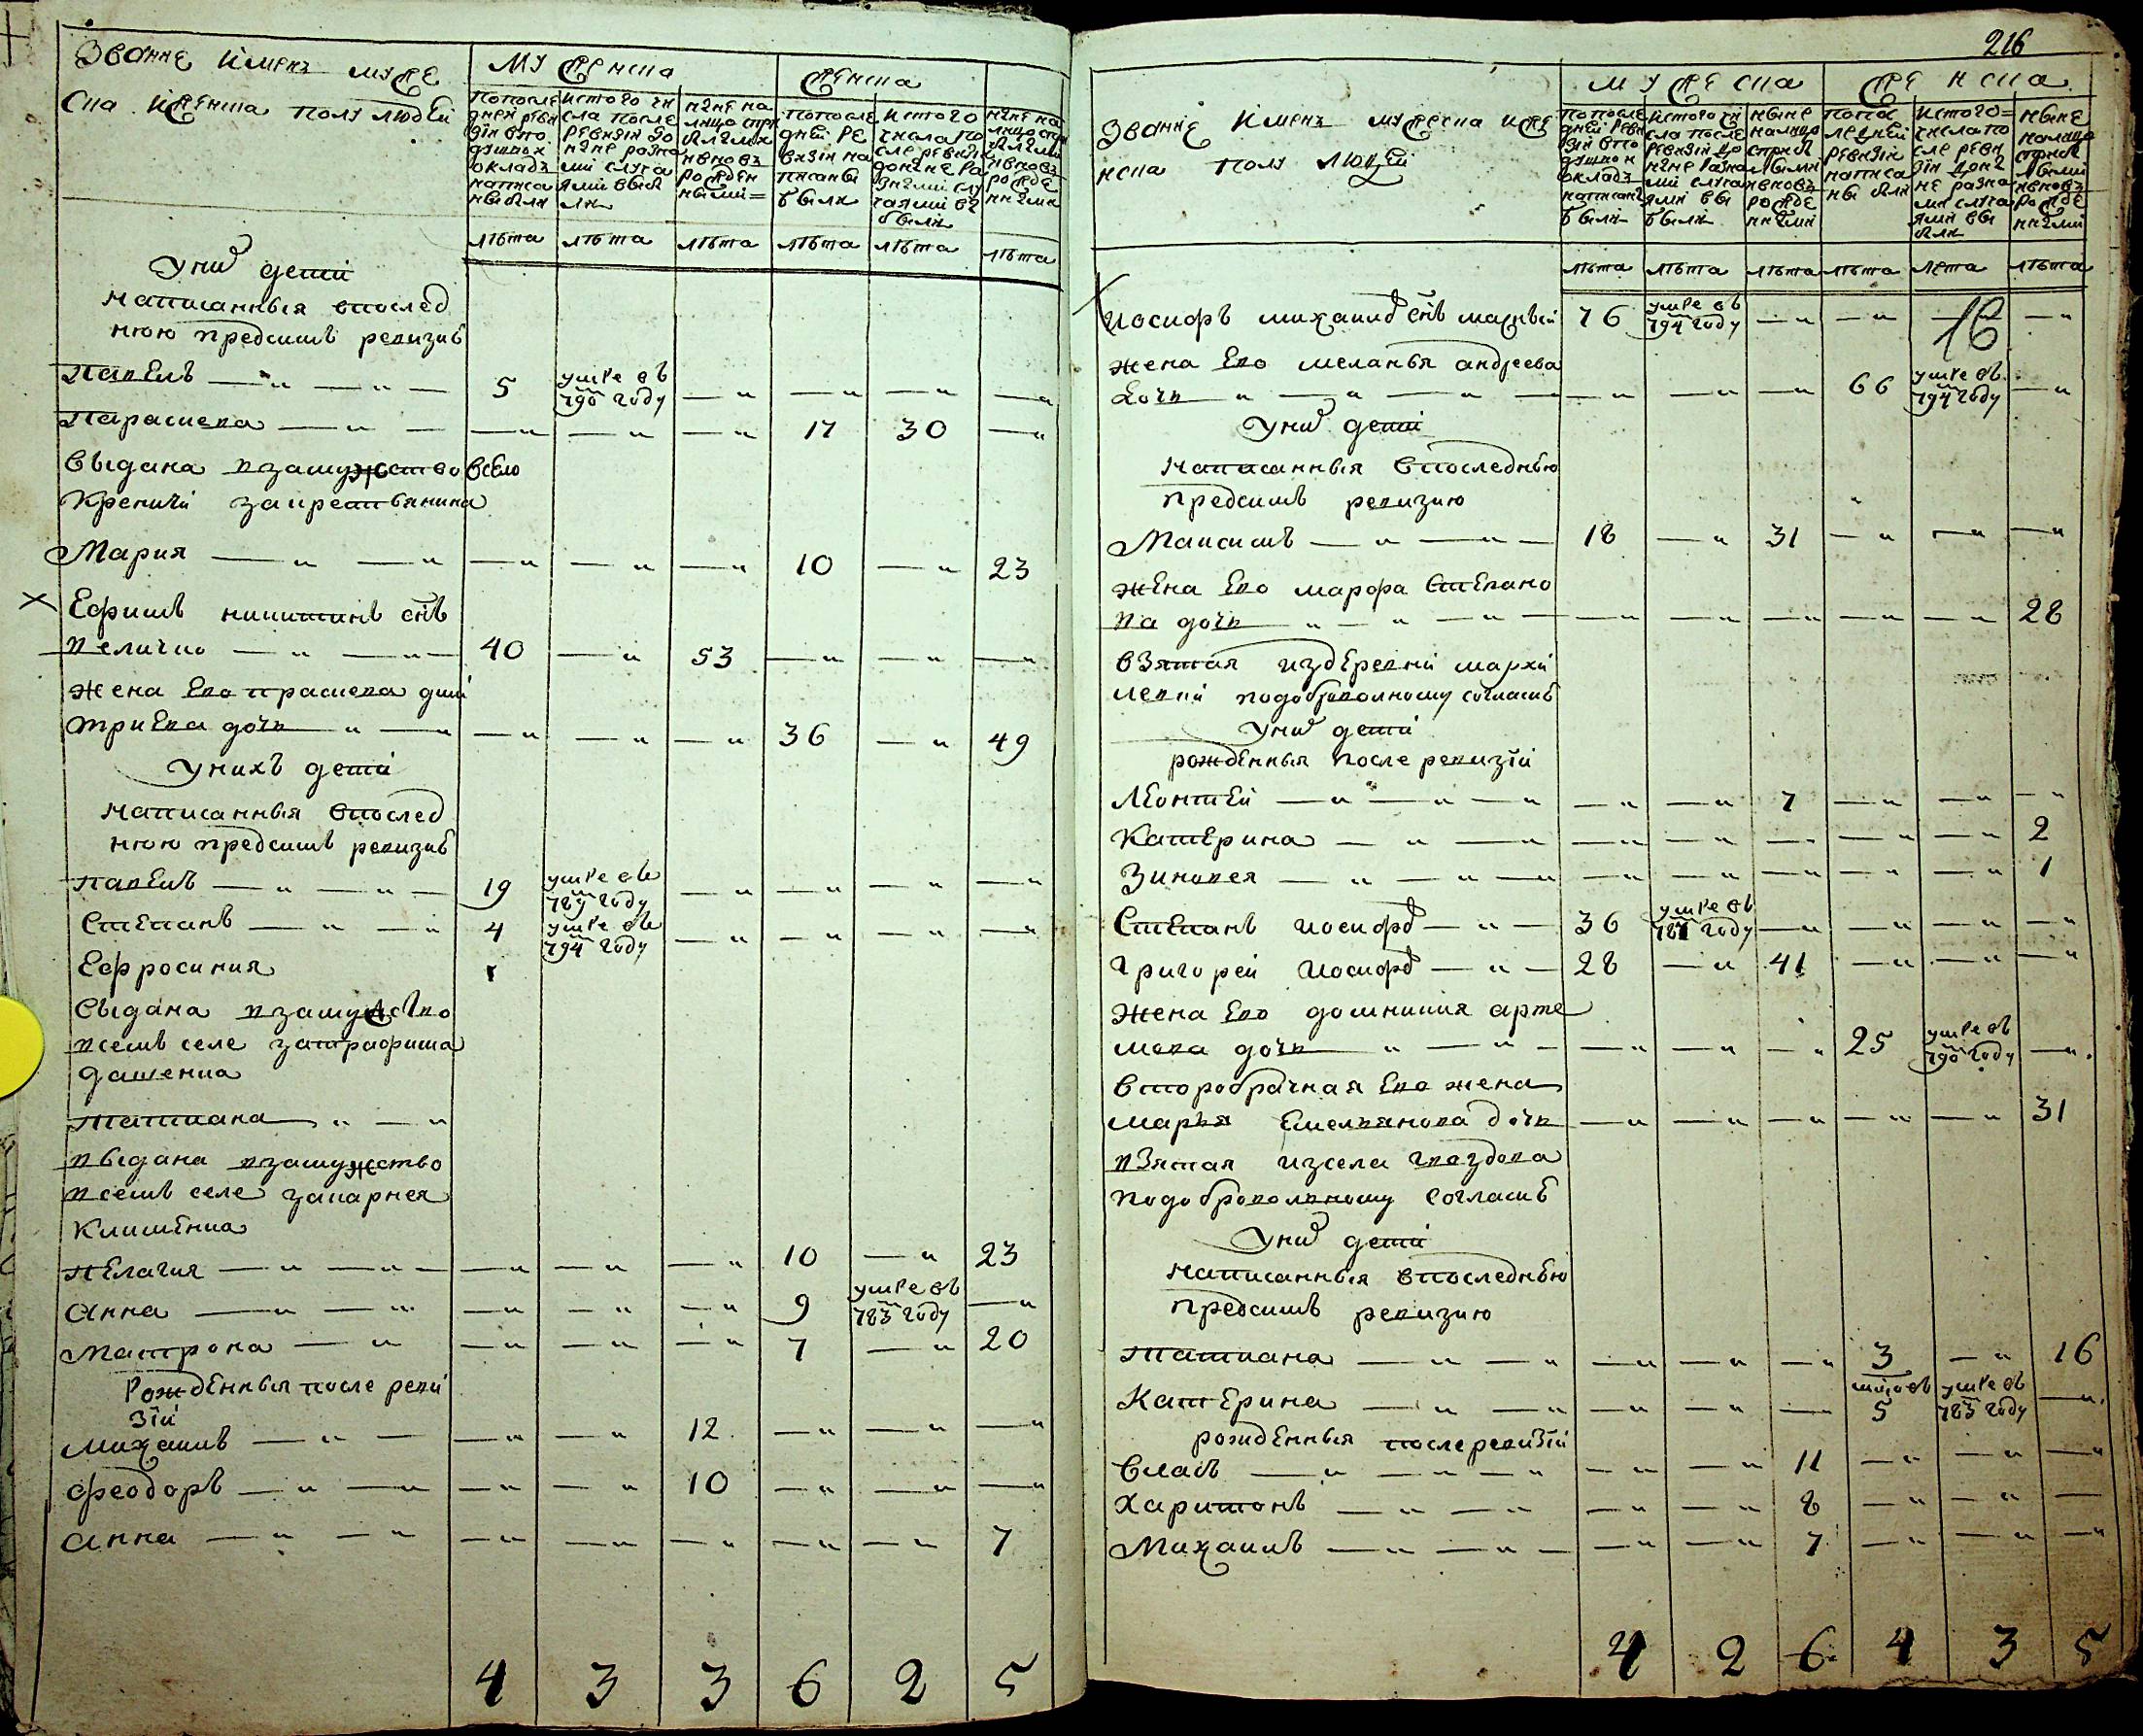 Званне Именъ муже
ска Иженска полу людей
муженска
женска
попосле
дней реви
зіи вто
душной
окладъ
написа
ны были
истого чи
сла после
ревизіи до
ныне разны
ми случа
ями выбы
ли
ныне на
лицо
нвновъ
рожден
ными
попосле
дней ре
визіи на
писаны
были
истого
числа по
сле ревизіи
доныне ра
зными слу
чаями вы
были
ныне на
лицо
нвновъ
рожде
нными
лѣта лѣта лѣта лѣта лѣта лѣта
Уних дети
написанныя впослед
нюю предсимъ ревизию
павелъ — „ — „ — 5 умре въ 790 году — „ — „ — „ — „
Параскева — „ — — „ — „ — „ 17 30 — „
выдана взамужество всело
Крепичи закрестьянина
Мария — „ — „ — „ — „ — „ 10 — „ 23
Ефимъ никитинъ снъ
величко — „ — „ 40 — „ 53 — „ — „ — „
жена Ево праскева дми
триева дочь „ — „ — „ — „ — „ 36 — „ 49
Унихъ дети
написанныя впослед
нюю предсимъ ревизию
павелъ — „ — „ — 19 умре въ 789 году — „ — „ — „ — „
Степанъ — „ — „ 4 умре въ 794 году — „ — „ — „ — „
Ефросиния
выдана взамужство
всемъ селе затрофима
дашенка
татиана „ — „
выдана взамужство
всемъ селе закарнея
Клименка
пелагия — „ — „ — — „ — „ — „ 10 — „ 23
анна — „ — „ — „ — „ — „ 9 умре въ 783 году — „
матрона — „ — „ — „ — „ 7 — „ 20
Рожденныя после реви
зіи
михаилъ — „ — — „ — „ 12 — „ — „ — „
феодоръ — „ — — „ — „ 10 — „ — „ — „
анна — „ — „ — „ — „ — „ — „ — „ 7
4 3 3 6 2 5
216
Званне Именъ мужеска иже
нска полу людей
мужеска
женска
попосле
дней реви
зіи вто
душной
окладъ
написаны
были
истого чи
сла после
ревизіи до
ныне разны
ми случа
ями вы
были
ныне
налицо
нвновъ
рожде
нными
попос
ледней
ревизіи
написа
ны были
истого
числапо
сле реви
зіи доны
не разны
ми случа
ями вы
были
ныне
налицо
нвновъ
рожде
нными
лѣта лѣта лѣта лѣта лета лѣта
Иосифъ михаилов снъ малый 76 умре въ 794 году — „ — „ — — „
16
жена Ево меланья андреева
дочь „ — „ — „ — — „ — „ — „ 66 умре въ 794 году — „
Уних дети
написанныя впоследнюю
предсимъ ревизию
Максимъ — „ — „ — 18 — „ 31 — „ — „ — „
жена Ево марфа Степано
ва дочь „ — „ — „ — — „ — „ — „ — „ — „ 28
взятая издеревни
подобровольному согласию
Уних дети
рожденныя после ревизіи
Леонтей — „ — „ — „ — „ — „ 7 — „ — „ — „
Катерина — „ — „ — „ — „ — „ — „ — „ 2
Зиновея — „ — „ — — „ — „ — „ — „ — „ 1
Степанъ иосифов — „ — 36 умре въ 787 году — „ — „ — „ — „
Григорей иосифов — „ — 28 — „ 41 — „ — „ — „
жена Ево домникия арте
мова дочь „ — „ — — „ — „ — „ 25 умре въ 790 году — „
второбрачная Ево жена
марья Емельянова дочь — „ — „ — „ — „ — „ 31
взятая изсела гвоздова
подобровольному согласию
Уних дети
написанныя впоследнюю
предсимъ ревизию
татиана — „ — „ — „ — „ — „ 3 — „ 16
Катерина — „ — „ — „ — „ — месяцовъ 5 умре въ 783 году — „
рожденныя послеревизіи
власъ — „ — „ — „ — „ — „ 11 — „ — „ — „
харитонъ — „ — „ — „ — „ 8 — „ — „ —
Михаилъ — „ — „ — — „ — „ 7 — „ — „ — „
4 2 6 4 3 5